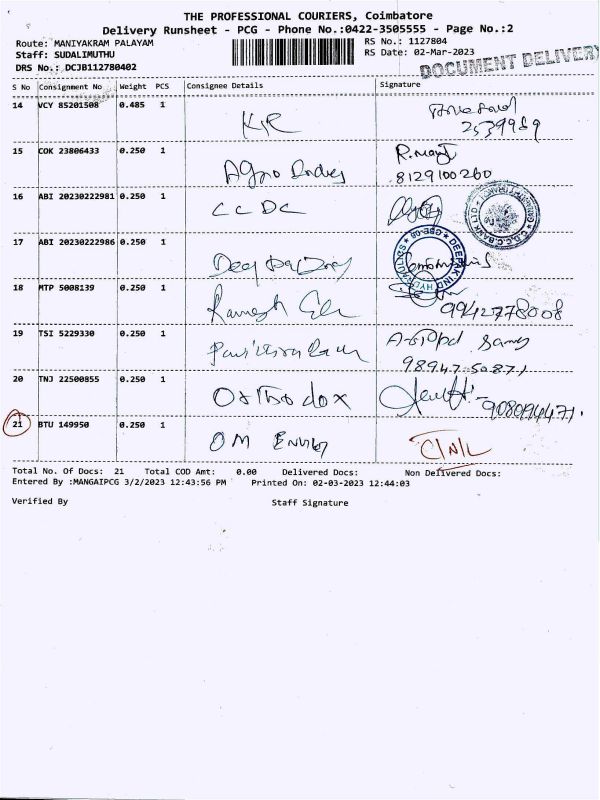 THE PROFESSIONAL COURIERS, Coimbatore
Delivery Runsheet - PCG - Phone No.:0422-3505555 - Page No.:2
Route: MANIYAKRAM PALAYAM
Staff: SUDALIMUTHU
DRS No.: DCJB112780402
RS No.: 1127804
RS Date: 02-Mar-2023
DOCUMENT DELIVERY
S No Consignment No Weight PCS Consignee Details Signature
14 VCY 85201508 0.485 1 KR
2539989
15 COK 23806433 0.250 1 Agro
8129100260
16 ABI 20230222981 0.250 1 CCDC
C.D.C.C.BANK LTD
17 ABI 20230222986 0.250 1
DEEPAK IND HYDRAULICS
18 MTP 5008139 0.250 1 Ramesh
9942778008
19 TSI 5229330 0.250 1
98947 50871
20 TNJ 22500855 0.250 1 Orthodox
9080944471
21 BTU 149950 0.250 1 OM
C/N/L
Total No. Of Docs: 21 Total COD Amt: 0.00 Delivered Docs: Non Delivered Docs:
Entered By :MANGAIPCG 3/2/2023 12:43:56 PM Printed On: 02-03-2023 12:44:03
Verified By Staff Signature